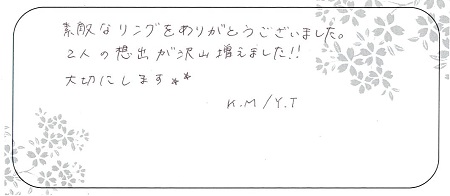 素敵なリングをありがとうございました。
2人の想出が沢山増えました!!
大切にします**
K.M/Y.T